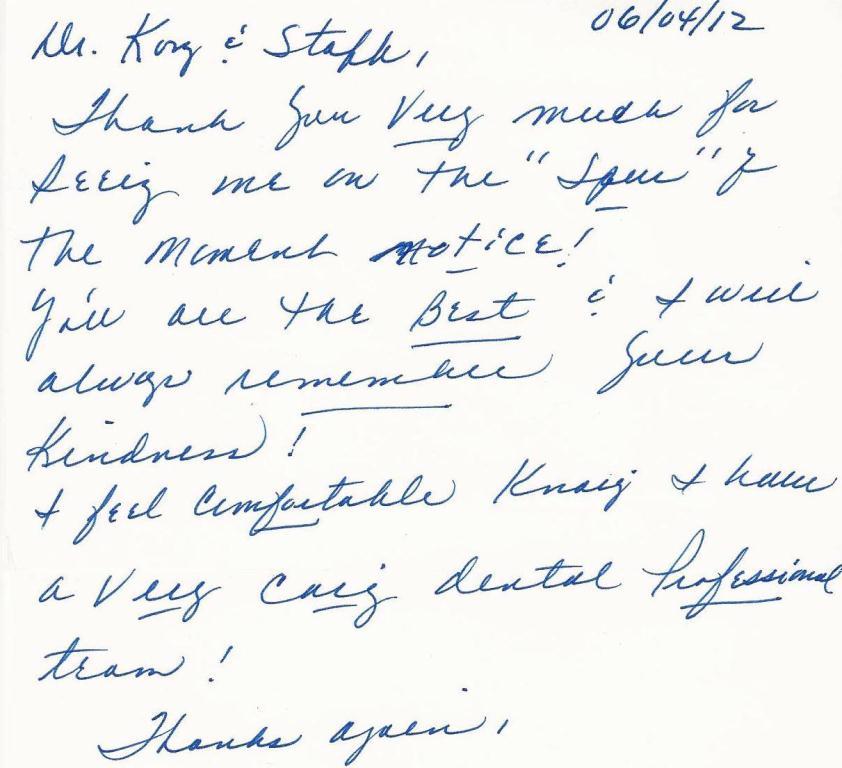 06/04/12
Dr. Korg & Staff,
Thank you Very much for
seeing me on the "Spur" of
the moment notice!
You are the Best & I will
always remember your
Kindness!
I feel comfortable Knowing I have
a very caring dental Professional
team!
Thanks again,